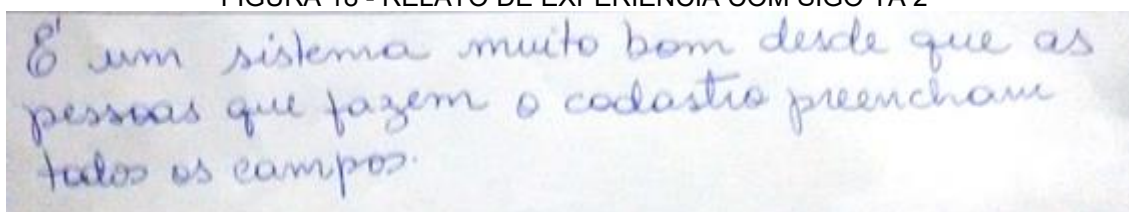 É um sistema muito bom desde que as
pessoas que fazem o cadastro preencham
todos os campos.